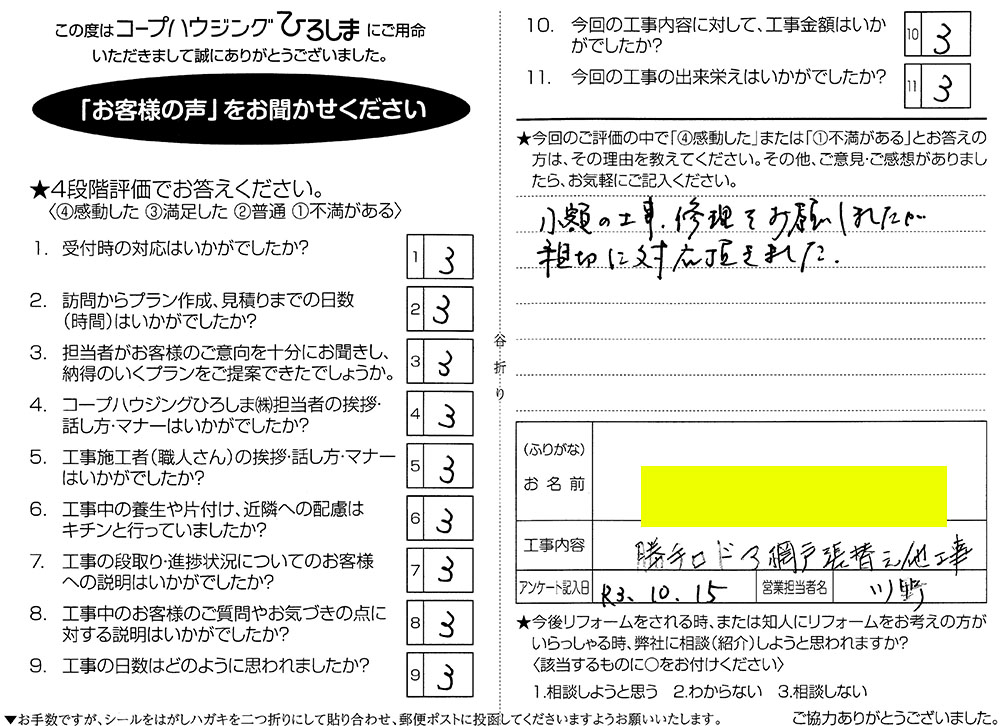 この度はコープハウジングひろしまにご用命
いただきまして誠にありがとうございました。
「お客様の声」をお聞かせください
★4段階評価でお答えください。
〈④感動した ③満足した ②普通 ①不満がある〉
1. 受付時の対応はいかがでしたか?
1 3
2. 訪問からプラン作成、見積りまでの日数
(時間)はいかがでしたか?
2 3
3. 担当者がお客様のご意向を十分にお聞きし、
納得のいくプランをご提案できたでしょうか。
3 3
4. コープハウジングひろしま㈱担当者の挨拶・
話し方・マナーはいかがでしたか?
4 3
5. 工事施工者(職人さん)の挨拶・話し方・マナー
はいかがでしたか?
5 3
6. 工事中の養生や片付け、近隣への配慮は
キチンと行っていましたか?
6 3
7. 工事の段取り・進捗状況についてのお客様
への説明はいかがでしたか?
7 3
8. 工事中のお客様のご質問やお気づきの点に
対する説明はいかがでしたか?
8 3
9. 工事の日数はどのように思われましたか?
9 3
▼お手数ですが、シールをはがしハガキを二つ折りにして貼り合わせ、郵便ポストに投函してくださいますようお願いいたします。
谷折り
10. 今回の工事内容に対して、工事金額はいか
がでしたか?
10 3
11. 今回の工事の出来栄えはいかがでしたか?
11 3
★今回のご評価の中で「④感動した」または「①不満がある」とお答えの
方は、その理由を教えてください。その他、ご意見・ご感想がありまし
たら、お気軽にご記入ください。
小額の工事、修理をお願いしましたが
親切に対応頂きました.
(ふりがな)
お名前
工事内容 勝手口ドア網戸張替え他工事
アンケート記入日 R3.10.15 営業担当者名 川野
★今後リフォームをされる時、または知人にリフォームをお考えの方が
いらっしゃる時、弊社に相談(紹介)しようと思われますか?
〈該当するものに○をお付けください〉
1.相談しようと思う 2.わからない 3.相談しない
ご協力ありがとうございました。